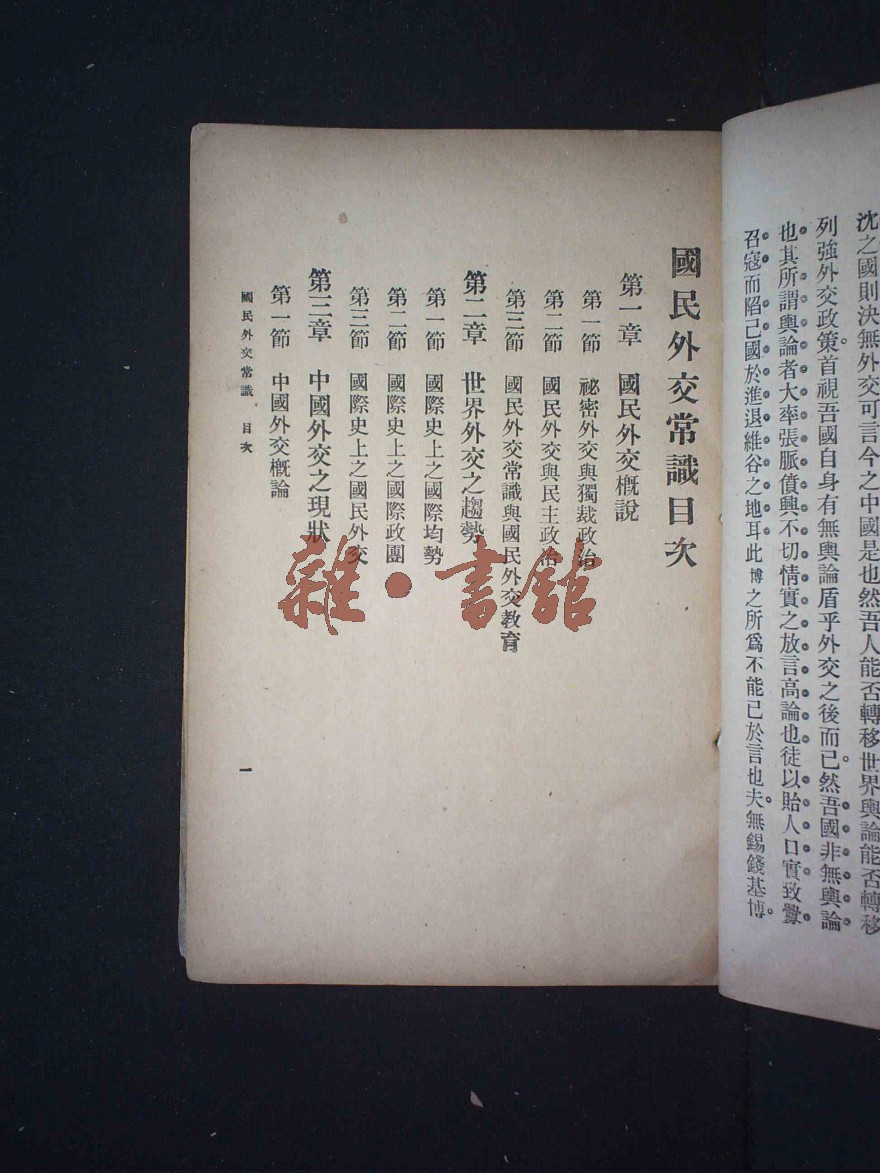 沈之國則決無外交可言今之中國是也然吾人能否轉移世界輿論能否轉移
列強外交政策首視吾國自身有無輿論盾乎外交之後而已然吾國非無輿論
也其所謂輿論者大率張脈僨興不切情實之放言高論也徒以貽人口實致釁
召寇而陷己國於進退維谷之地耳此博之所爲不能已於言也夫無錫錢基博
國民外交常識目次
第一章 國民外交概說
第一節 祕密外交與獨裁政治
第二節 國民外交與民主政治
第三節 國民外交常識與國民外交教育
第二章 世界外交之趨勢
第一節 國際史上之國際均勢
第二節 國際史上之國際政團
第三節 國際史上之國民外交
第三章 中國外交之現狀
第一節 中國外交概論
國民外交常識 目次
一
雜·書館